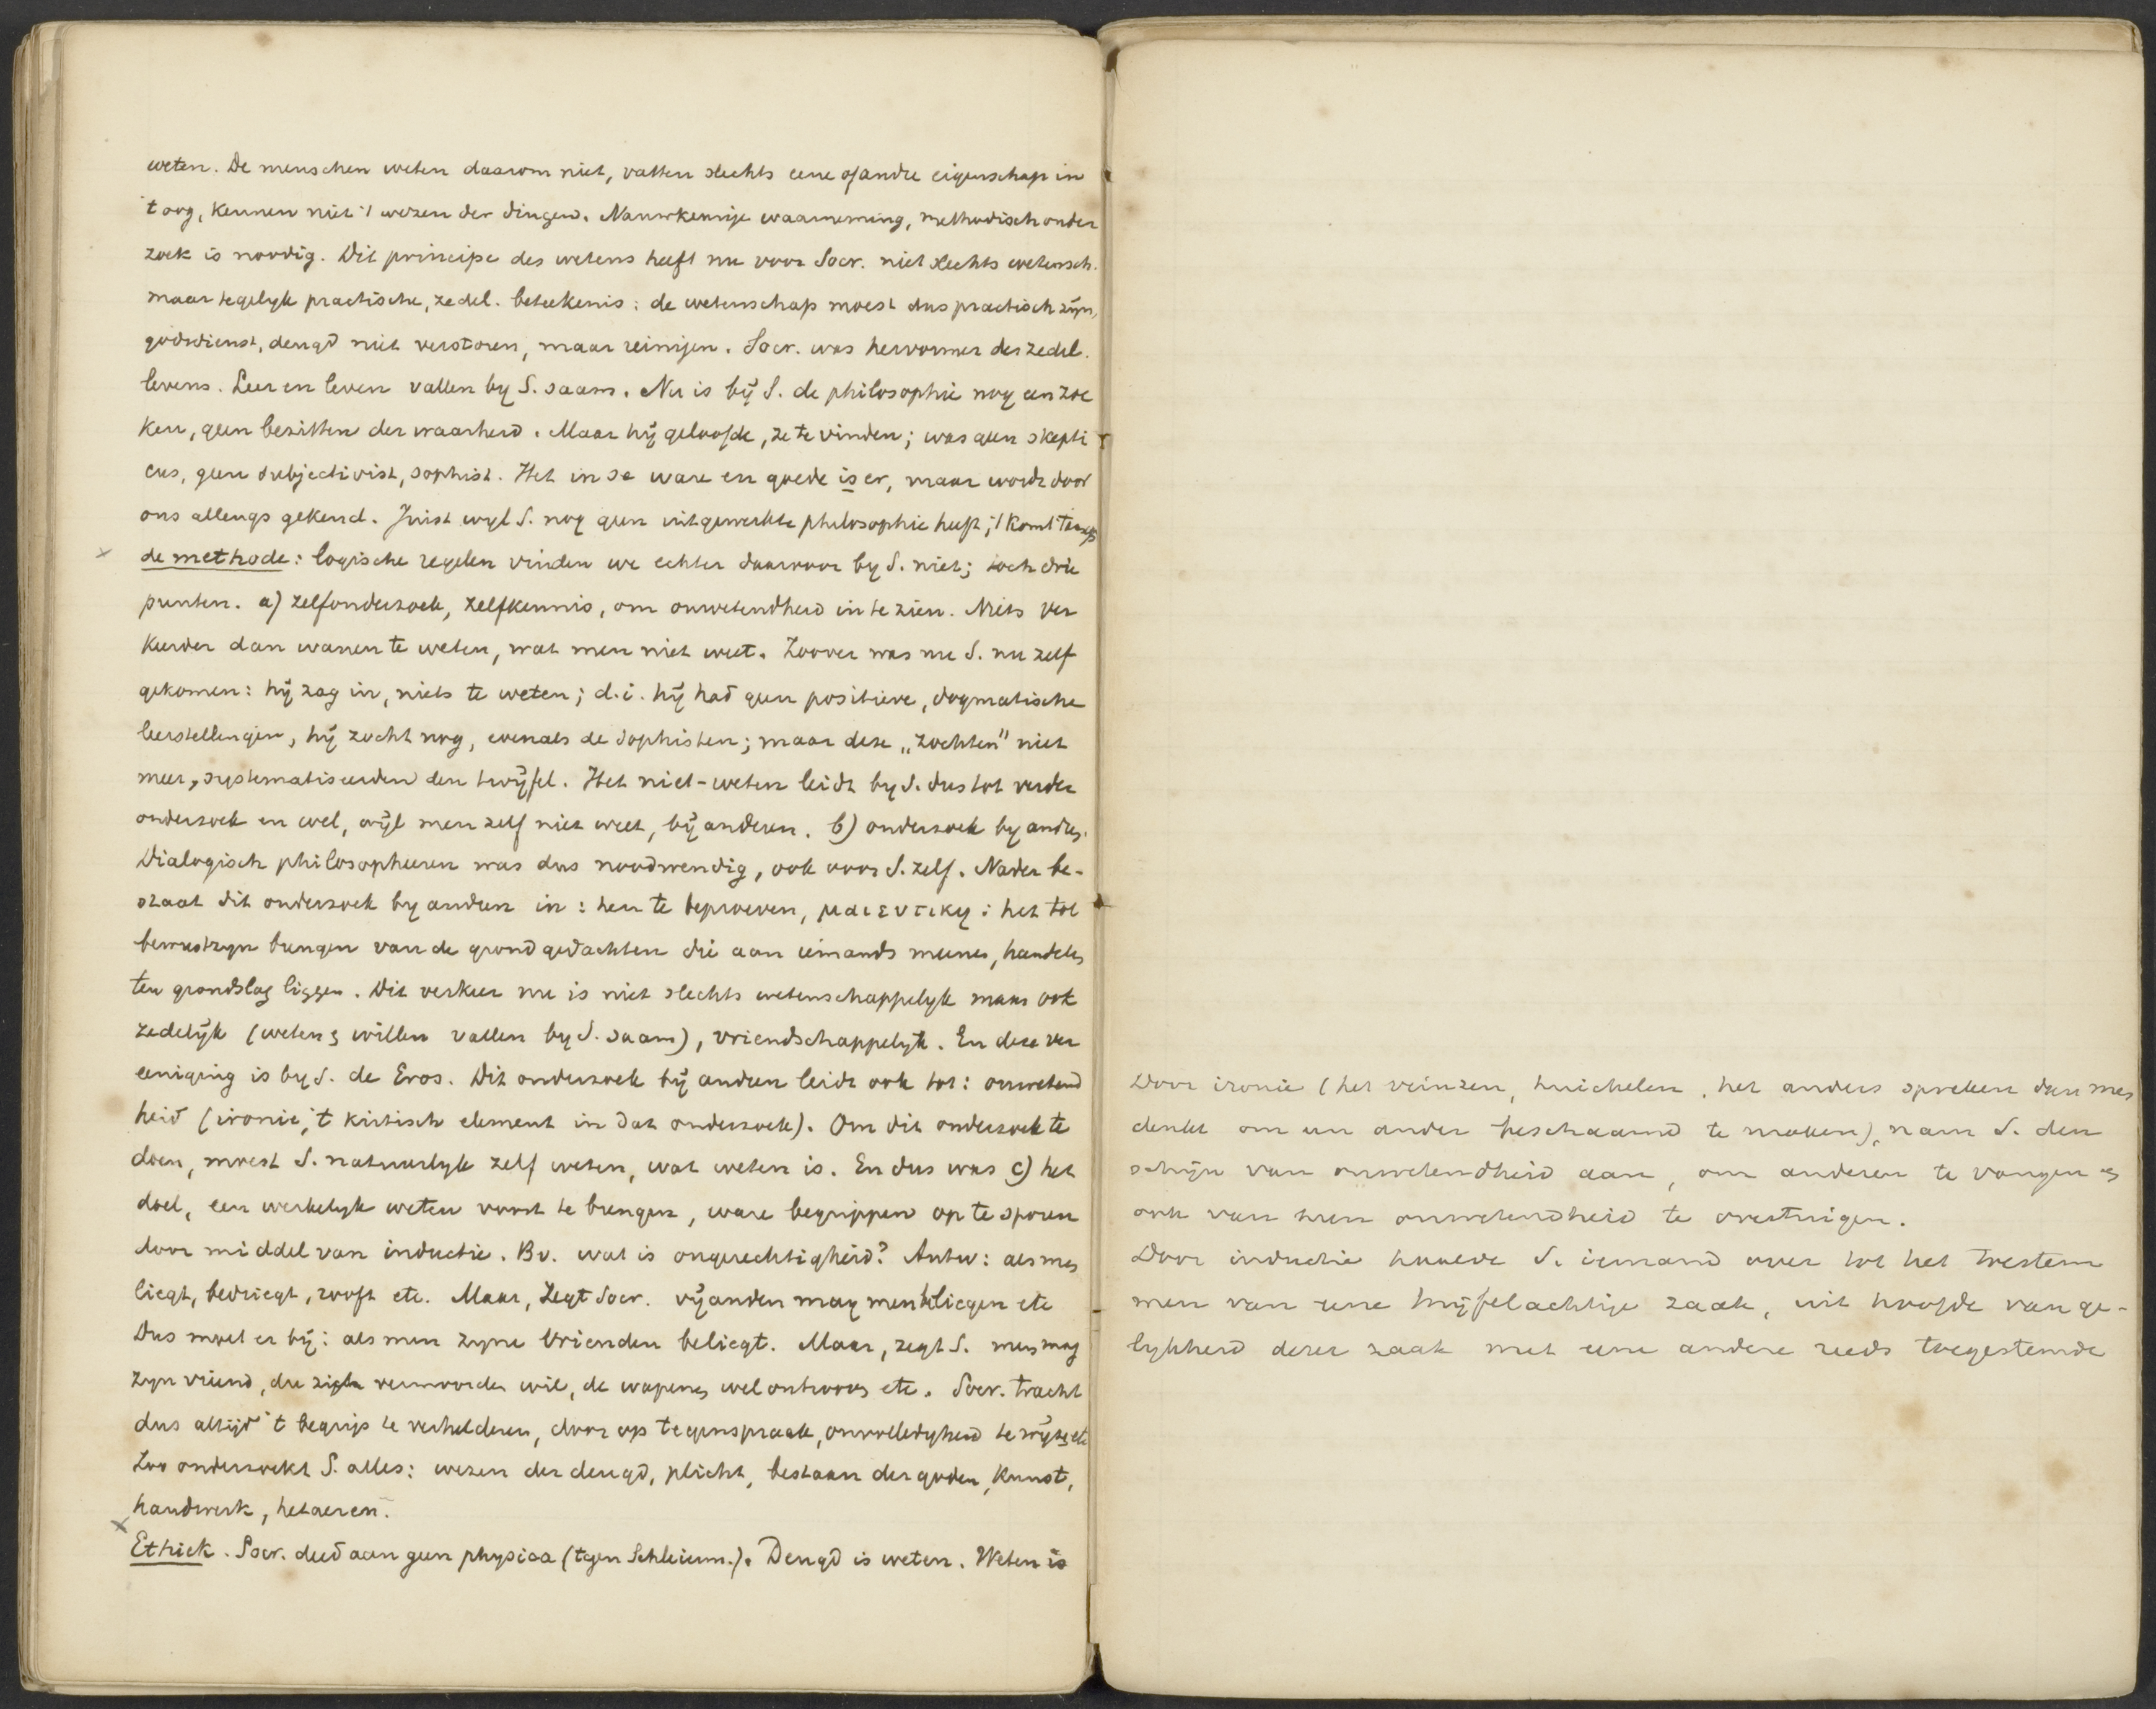 weten. De menschen weten daarom niet, vatten slechts eene of andre eigenschap in
't oog, kennen niet 't wezen der dingen. Nauwkeurige waarneming, methodisch onder
zoek is noodig. Dit principe des wetens heeft nu voor Socr. niet slechts wetensch.
maar tegelyk practische, zedel. beteekenis: de wetenschap moest dus practisch zijn,
godsdienst, deugd niet verstoren, maar reinigen. Socr. was hervormer des zedel.
levens. Leer en leven vallen by S. saam. Nu is bij S. de philosophie nog een zoe
ken, geen bezitten der waarheid. Maar hij geloofde, ze te vinden; was geen skepti
cus, geen subjectivist, sophist. Het in se ware en goede is er, maar wordt door
ons allengs gekend. Juist wyl S. nog geen uitgewerkte philosophie heeft, 't komt 't aan op
de methode: logische regelen vinden we echter daarvoor by S. niet; toch drie
punten. a) zelfonderzoek, zelfkennis, om onwetendheid in te zien. Niets ver
keerder dan wanen te weten, wat men niet weet. Zoover was nu S. nu zelf
gekomen: hij zag in, niets te weten; d.i. hij had geen positieve, dogmatische
leerstellingen, hij zocht nog, evenals de Sophisten; maar deze „zochten" niet
meer, systematiseerden den twijfel. Het niet-weten leidt by S. dus tot verder
onderzoek en wel, wijl men zelf niet weet, bij anderen. b) onderzoek by andren.
Dialogisch philosopheeren was dus noodwendig, ook voor S. zelf. Nader be-
staat dit onderzoek by andren in: hen te beproeven, μαιευτικη: het tot
bewustzyn brengen van de grondgedachten die aan iemands meenen, handelen
ten grondslag liggen. Dit verkeer nu is niet slechts wetenschappelyk maar ook
zedelijk (weten & willen vallen by S. saam), vriendschappelyk. En deze ver
eeniging is by S. de Eros. Dit onderzoek bij andren leidt ook tot: onwetend
heid (ironie, 't kritisch element in dat onderzoek). Om dit onderzoek te
doen, moest S. natuurlyk zelf weten, wat weten is. En dus was c) het
doel, een werkelyk weten voort te brengen, ware begrippen op te sporen
door middel van inductie. Bv. wat is ongerechtigheid? Antw: als men
liegt, bedriegt, rooft etc. Maar, zegt Socr. vijanden mag men beliegen etc
Dus moet er bij: als men zyne vrienden beliegt. Maar, zegt S. men mag
zyn vriend, die zich vermoorden wil, de wapenen wel ontrooven etc. Socr. tracht
dus altijd 't begrip te verhelderen, door op tegenspraak, onvolledigheid te wijzen etc
Zoo onderzoekt S. alles: wezen der deugd, plicht, bestaan der goden, kunst,
handwerk, hetaeren.
Ethiek. Socr. deed aan geen physica (tegen Schleierm.). Deugd is weten. Weten is
Door ironie (het veinzen, huichelen, het anders spreken dan men
denkt om een ander beschaamd te maken), nam S. den
schijn van onwetendheid aan, om anderen te vangen en
ook van hun onwetendheid te overtuigen.
Door inductie haalde S. iemand over tot het toestem
men van eene twijfelachtige zaak, uit hoofde van ge-
lykheid dezer zaak met eene andere reeds toegestemde